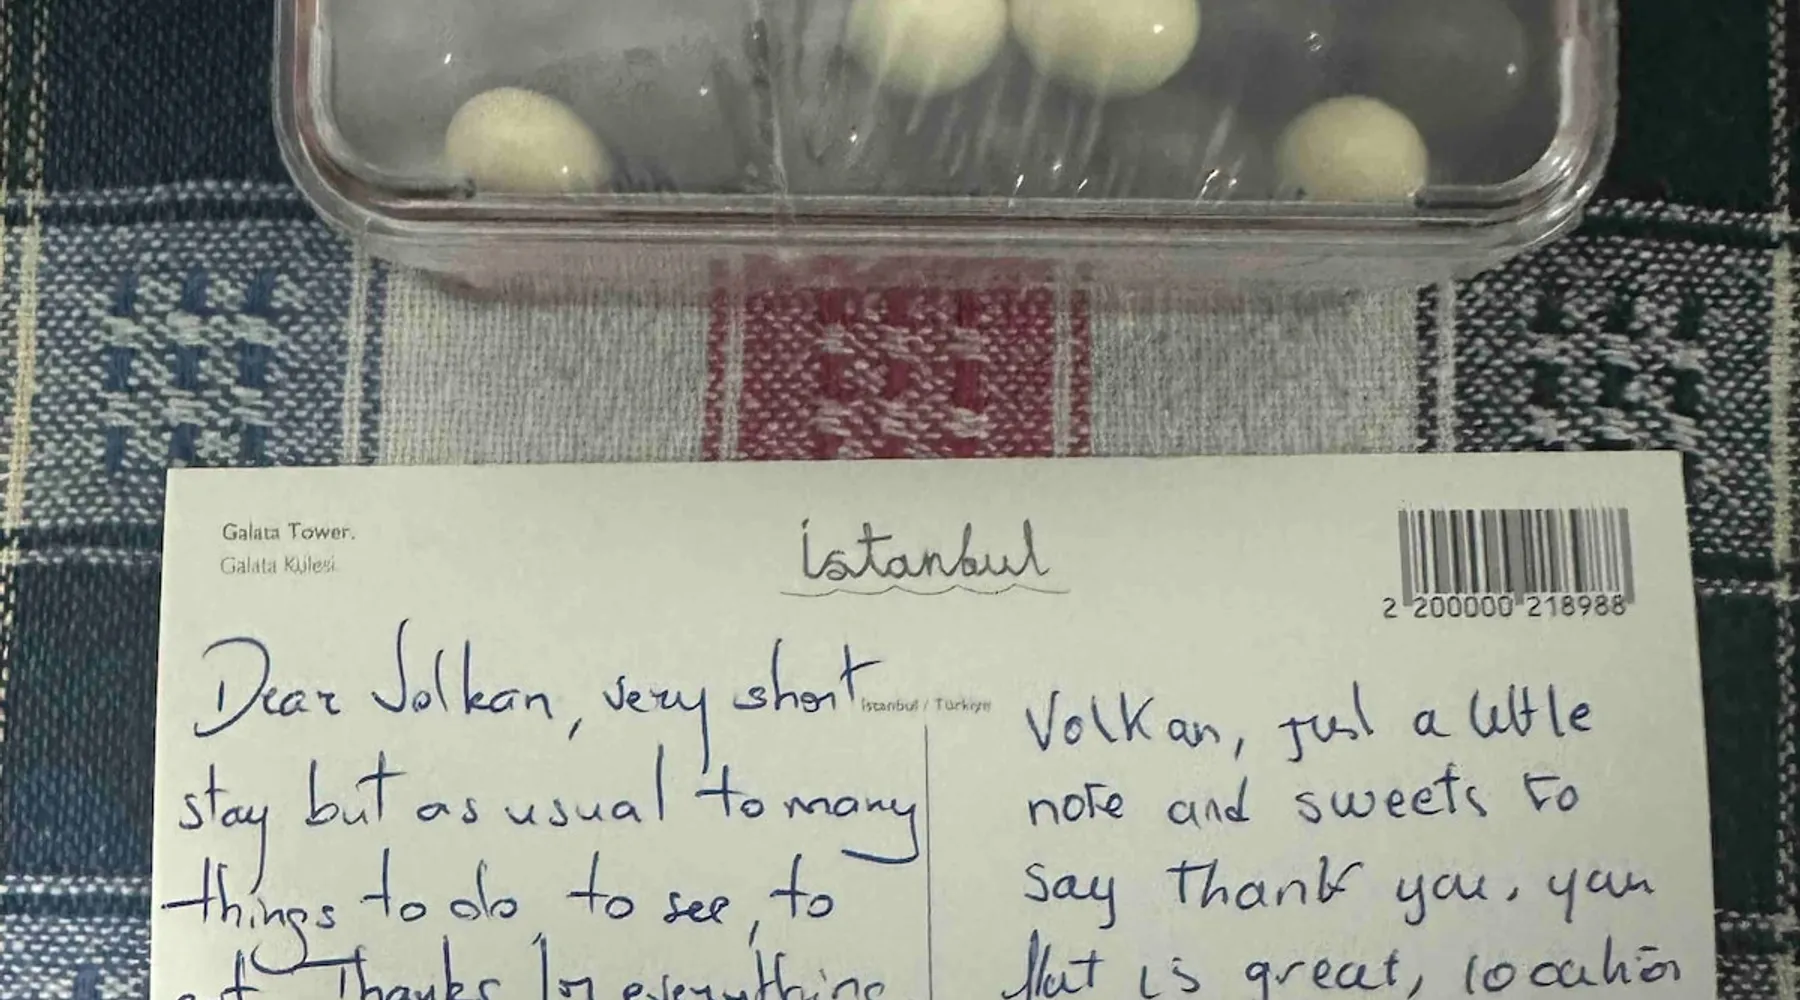 Galata Tower.
Galata Kulesi.
İstanbul
2 200000 218988
İstanbul / Türkiye
Dear Volkan, very short
stay but as usual to many
things to do to see, to
eat. Thanks for everything
Volkan, just a little
note and sweets to
say thank you, your
flat is great, location